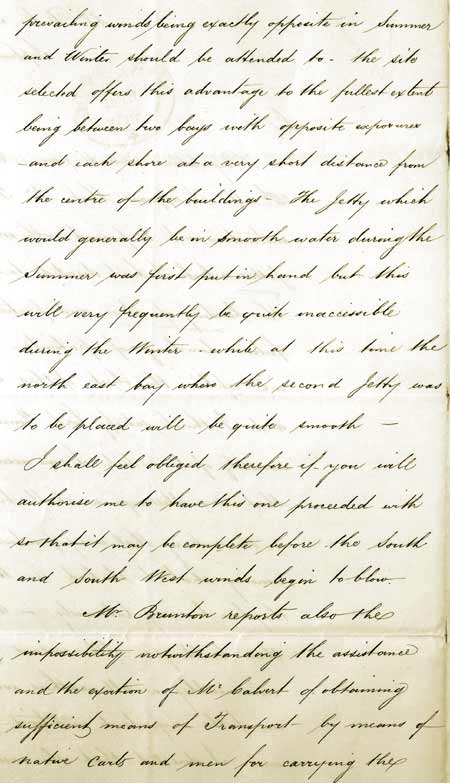 prevailing winds being exactly opposite in Summer
and Winter should be attended to - the site
selected offers this advantage to the fullest extent
being between two bays with opposite exposures
- and each shore at a very short distance from
the centre of the buildings - The Jetty which
would generally be in smooth water during the
Summer was first put in hand but this
will very frequently be quite inaccessible
during the Winter - while at this time the
north east bay where the second Jetty was
to be placed will be quite smooth —
I shall feel obliged therefore if you will
authorise me to have this one proceeded with
so that it may be complete before the South
and South West winds begin to blow.
Mr. Brunton reports also the
impossibility notwithstanding the assistance
and the exertion of Mr Calvert of obtaining
sufficient means of Transport by means of
native Carts and men for carrying the